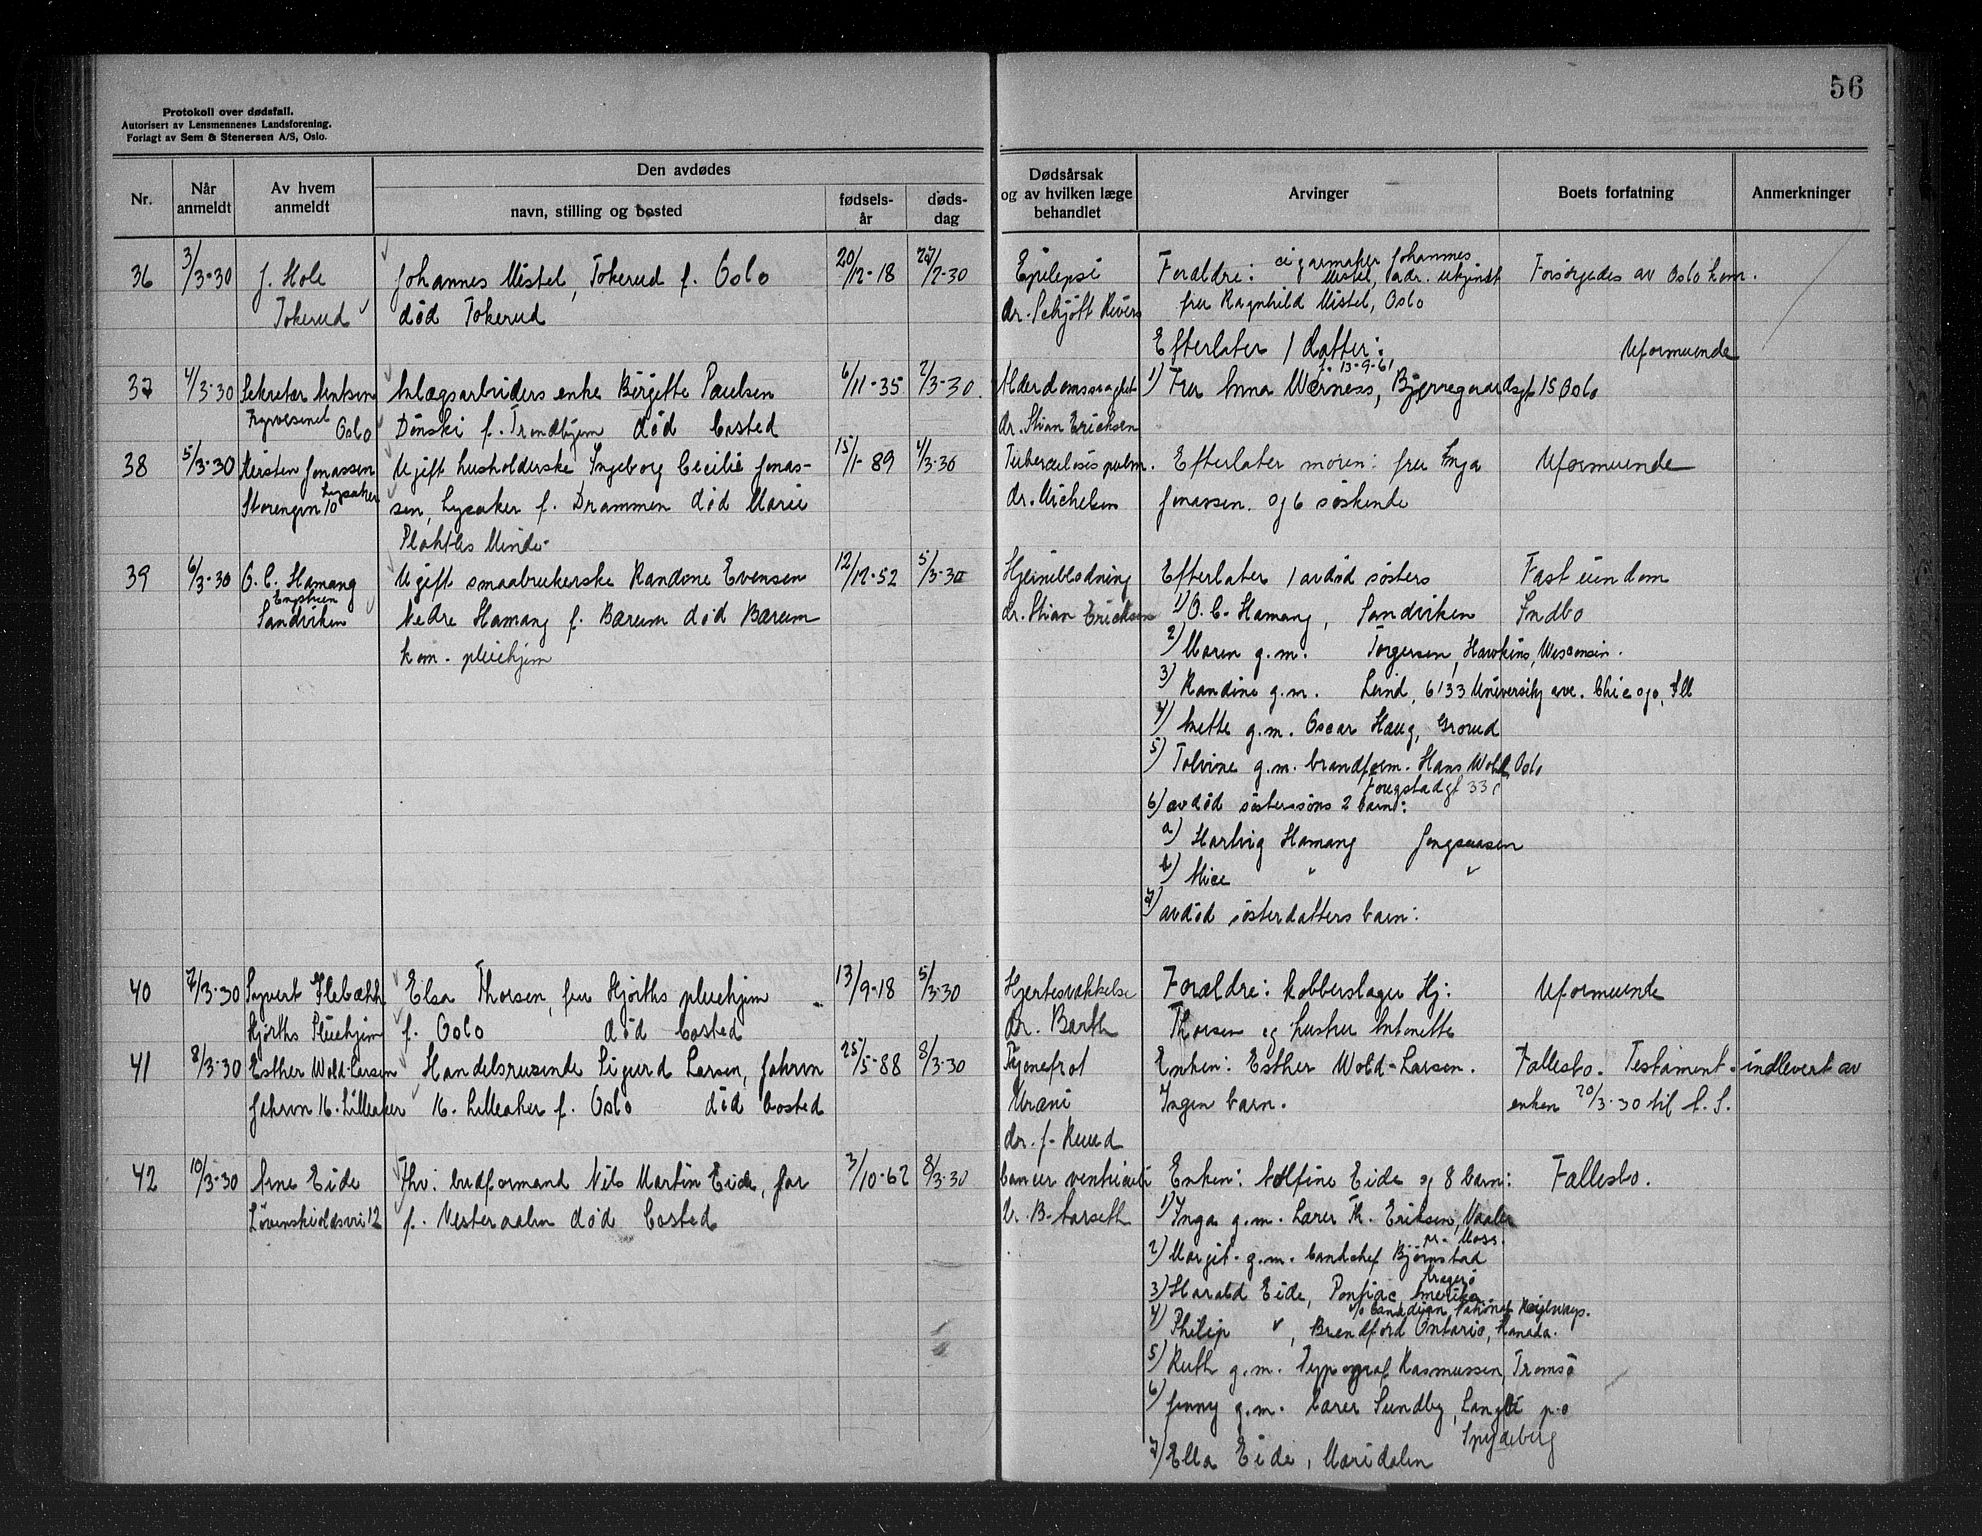 56
Protokoll over dødsfall.
Autorisert av Lensmennenes Landsforening.
Forlagt av Sem & Stenersen A/S, Oslo.
Nr.
Når anmeldt
Av hvem anmeldt
Den avdødes
navn, stilling og bosted
fødsels-år
døds-dag
Dødsårsak og av hvilken læge behandlet
Arvinger
Boets forfatning
Anmerkninger
36 3/3-30 J. Hole Johannes Mistel, Tokerud f. Oslo 20/12-18 27/2-30 Epilepsi Forældre: cigarmaker Johannes Mistel, adr. ukjendt Forsørgedes av Oslo kom.
Tokerud død Tokerud dr. Schjøtt Rivers fru Ragnhild Mistel, Oslo
Efterlater 1 datter: Uformuende
37 4/3-30 Sekretær Anlægsarbeiders enke Birgitte Paulsen 6/11-35 2/3-30. Alderdomssvaghet 1) Fru Anna Werness, f. 13-9-61 Bjerregaardsgt 15 Oslo
Oslo Dønski f. Trondhjem død bosted dr. Stian Ericksen
38 5/3-30 Kirsten Jonassen Ugift husholderske Ingeborg Cecilie Jonas- 15/1-89 4/3-30 Tuberculosis pulm. Efterlater moren: fru Inga Uformuende
Storengen 10 Lysaker sen, Lysaker f. Drammen død Marie dr. Michelsen Jonassen. og 6 søskende
Plahtes Minde
39 6/3-30 O. C. Hamang Ugift smaabrukerske Randine Evensen 12/12-52 5/3-30 Hjerneblødning Efterlater 1 avdød søsters Fast eiendom
Engstuen Sandviken Nedre Hamang f. Bærum død Bærum dr. Stian Ericksen 1) O. C. Hamang, Sandviken Indbo
kom. pleiehjem 2) Maren g.m. Torgersen, Hawkins, Wisconsin.
3) Randine g.m. Lund, 6133 University ave. Chicago, Ill
4) Anette g.m. Oscar Haug, Grorud
5) Tolvine g.m. brandform. Hans Wold, Oslo
33c
6) avdød søstersøns 2 barn:
a) Hartvig Hamang Jongsaasen
b) Alice " "
7) avdød søsterdatters barn:
40 7/3-30 Syvert Flebækk Elsa Thorsen, fru Hjorths pleiehjem 13/9-18 5/3-30 Hjertesvækkelse Forældre: kobberslager Hj: Uformuende
Hjorths Pleiehjem f. Oslo død bosted dr. Barth Thorsen og hustru Antonette
41 8/3-30 Esther Wold-Larsen Handelsreisende Sigurd Larsen, Jahrvn 25/5-88 8/3-30 Enken: Esther Wold-Larsen. Fallesbo. Testament indlevert av
Jahrvn 16. Lilleaker 16. Lilleaker f. Oslo død bosted Uræmi Ingen barn. enken 20/3-30 til S. S.
dr. J. Ruud
42 10/3-30 Arne Eide Fhv: budformand Nils Martin Eide, Jar 3/10-62 8/3-30 Cancer ventriculi Enken: Adolfine Eide og 8 barn: Fallesbo.
Løvenskioldsvei 12 f. Vesteraalen død bosted V. B. Aarseth 1) Inga g.m. Lærer Th. Eriksen, Vaaler
pr. Moss.
2) Margit g.m. Bjørnstad
Kragerø
3) Harald Eide, Pontiac, Amerika
c/o Canadian National Railways.
4) Philip " , Brendford Ontario, Kanada.
5) Ruth g.m. Typograf Rasmussen, Tromsø
6) Jenny g.m. Lærer Sundby, p.o
Spydeberg
7) Ella Eide, Maridalen